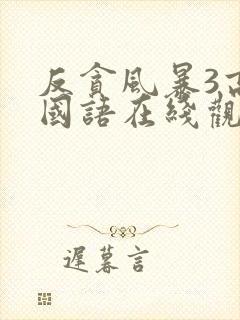 反貪風暴3高
國語在綫觀
遲暮言